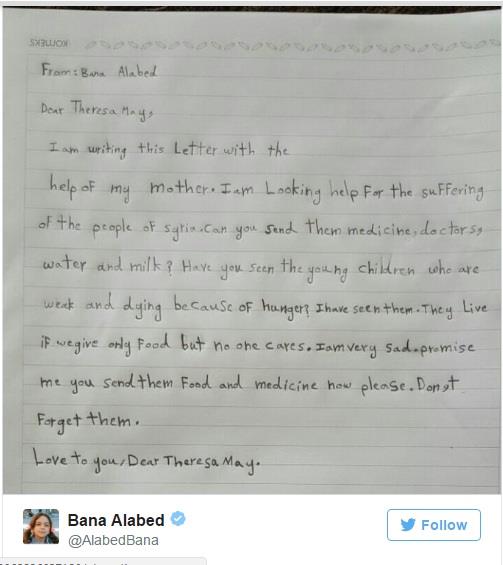 From: Bana Alabed
Dear Theresa May,
I am writing this Letter with the
help of my mother. I am Looking help For the suffering
of the people of syria. Can you send them medicine, doctors,
water and milk? Have you seen the young children who are
weak and dying because of hunger? I have seen them. They Live
if we give only Food but no one cares. I am very sad. promise
me you send them Food and medicine now please. Don,t
Forget them.
Love to you, Dear Theresa May.
Bana Alabed
@AlabedBana
Follow